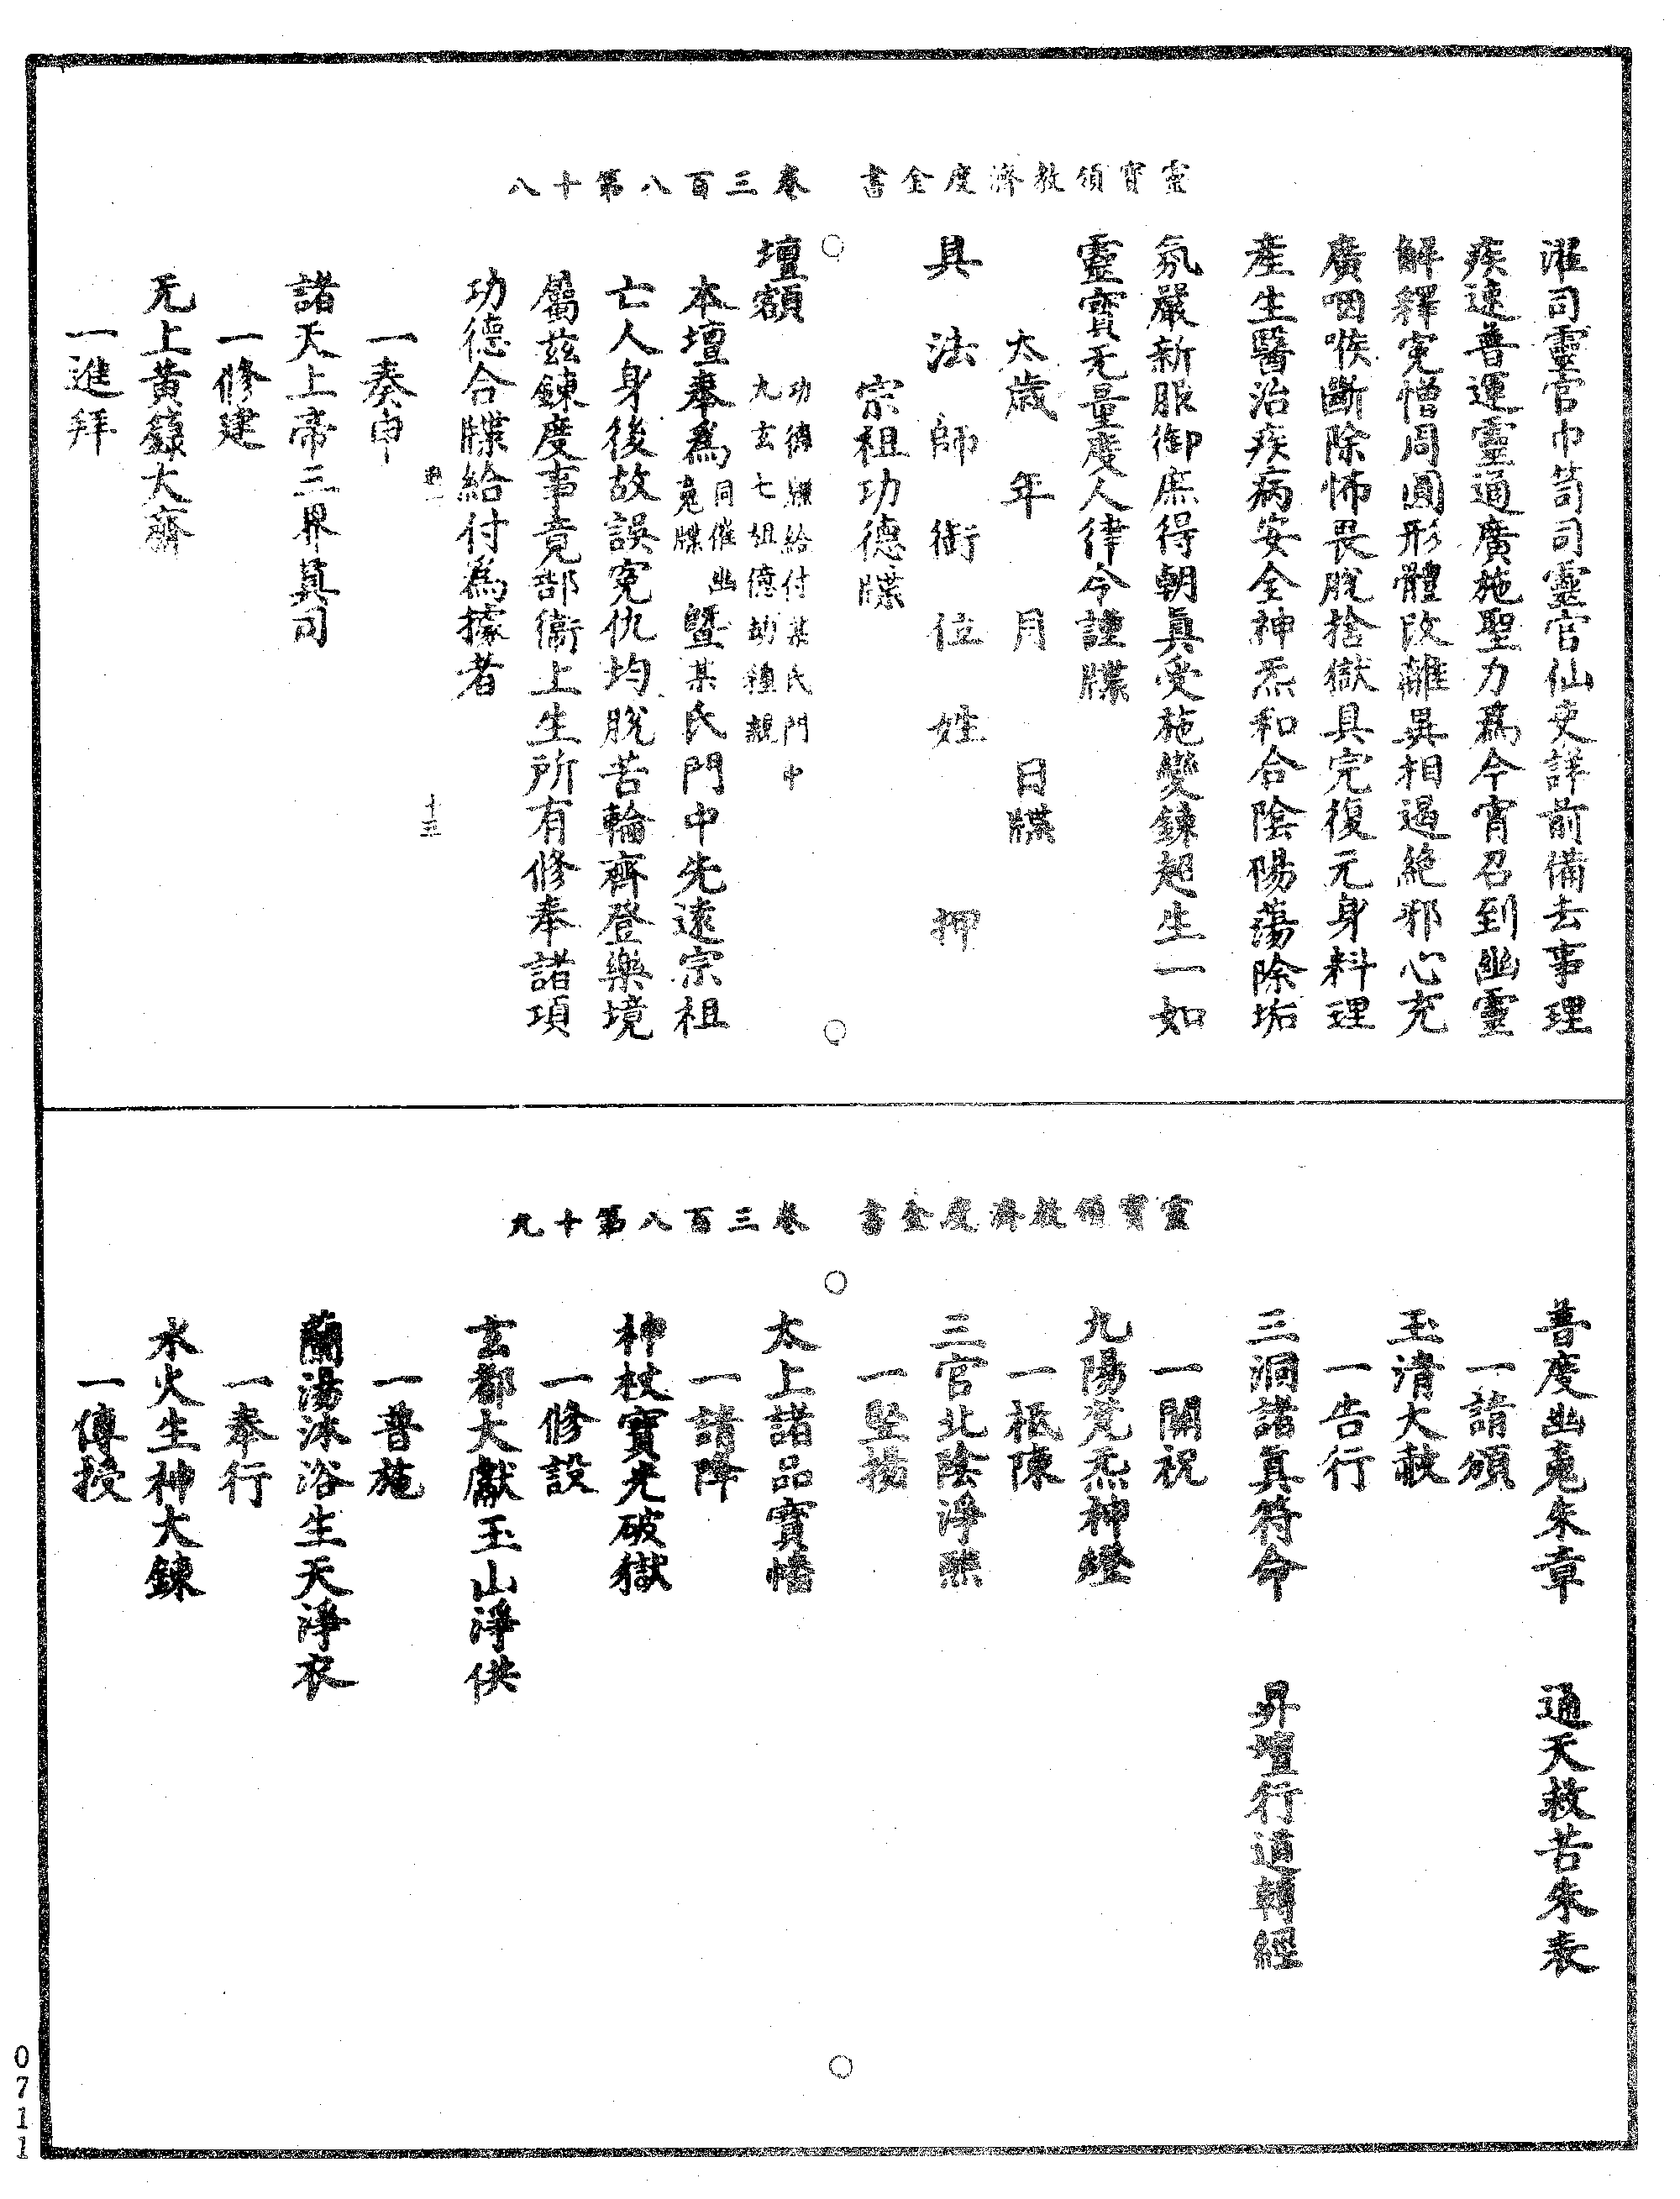 靈寶領教濟度金書　卷三百八第十八
濯司靈官巾笥司靈官仙吏詳前備去事理
疾速普運靈通廣施聖力爲今宵召到幽靈
解釋寃憎周圓形體改離異相遏絕邪心充
廣咽喉斷除怖畏脫捨獄具完復元身料理
產生醫治疾病安全神炁和合陰陽蕩除垢
氛嚴新服御庶得朝眞受施變鍊超生一如
靈寶无量度人律令謹牒
太歲　年　月　日牒
具法師銜位姓　押
宗祖功德牒
壇額　功德牒給付某氏門中
九玄七祖億劫種親
本壇奉爲同催幽𩲸牒暨某氏門中先遠宗祖
亡人身後故誤寃仇均脫苦輪齊登樂境
屬兹鍊度事竟部衞上生所有修奉諸項
功德合牒給付爲據者
十三
一奏申
諸天上帝三界眞司
一修建
无上黃籙大齋
一進拜
靈寶領教濟度金書　卷三百八第十九
普度幽𩲸朱章　通天救苦朱表
一請頒
玉清大赦
一告行
三洞諸眞符命　昇壇行道轉經
一關祝
九陽梵炁神燈
一祗陳
三官北陰淨醮
一竪揚
太上諸品寶幡
一請降
神杖寶光破獄
一修設
玄都大獻玉山淨供
一普施
蘭湯沐浴生天淨衣
一奉行
水火生神大鍊
一傳授
0711